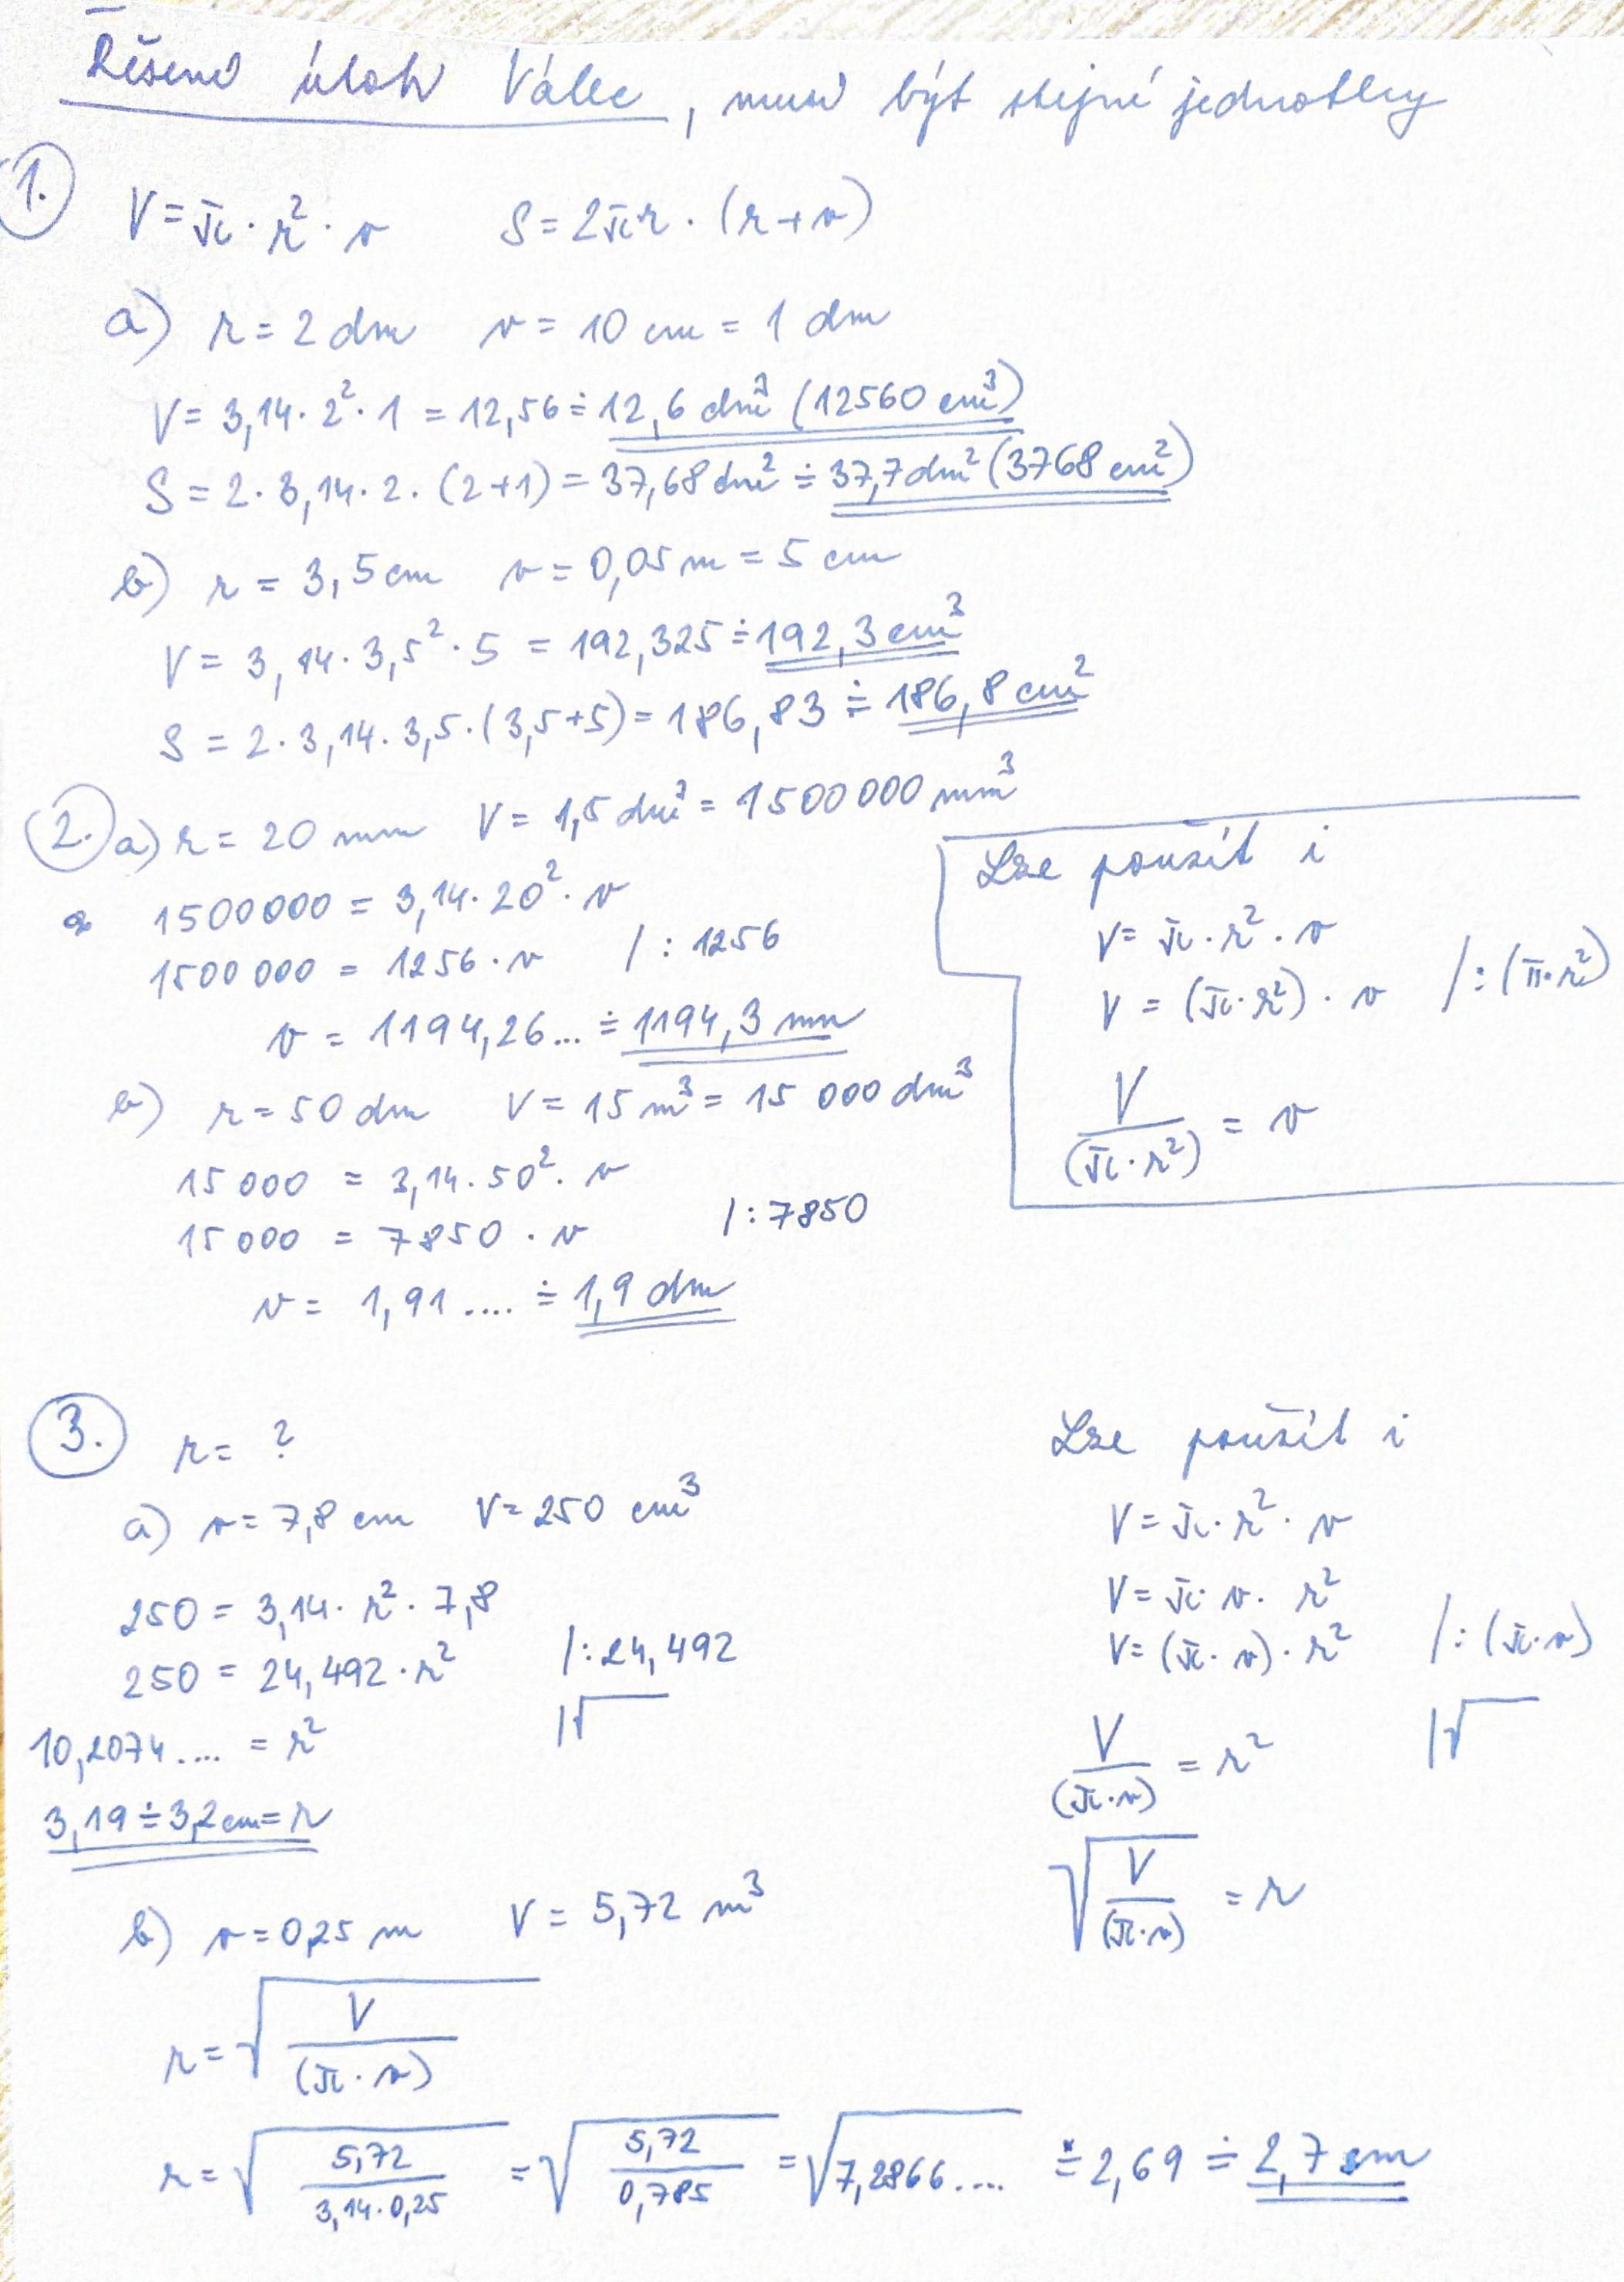 Řešení úloh Válec, musí být stejné jednotky
1.
V = π · r² · v    S = 2πr · (r + v)
a) r = 2 dm    v = 10 cm = 1 dm
V = 3,14 · 2² · 1 = 12,56 ≐ 12,6 dm³ (12560 cm³)
S = 2 · 3,14 · 2 · (2+1) = 37,68 dm² ≐ 37,7 dm² (3768 cm²)
b) r = 3,5 cm    v = 0,05 m = 5 cm
V = 3,14 · 3,5² · 5 = 192,325 ≐ 192,3 cm³
S = 2 · 3,14 · 3,5 · (3,5+5) = 186,83 ≐ 186,8 cm²
2. a) r = 20 mm    V = 1,5 dm³ = 1500000 mm³
1500000 = 3,14 · 20² · v
1500 000 = 1256 · v    / : 1256
v = 1194,26... ≐ 1194,3 mm
b) r = 50 dm    V = 15 m³ = 15 000 dm³
15 000 = 3,14 · 50² · v
15 000 = 7850 · v    / : 7850
v = 1,91.... ≐ 1,9 dm
Lze použít i
V = π · r² · v
V = (π · r²) · v    / : (π · r²)
V / (π · r²) = v
3. r = ?
a) v = 7,8 cm    V = 250 cm³
250 = 3,14 · r² · 7,8
250 = 24,492 · r²    / : 24,492
10,2074.... = r²    /√
3,19 ≐ 3,2 cm = r
Lze použít i
V = π · r² · v
V = π · v · r²
V = (π · v) · r²    / : (π · v)
V / (π · v) = r²    /√
√(V / (π · v)) = r
b) v = 0,25 m    V = 5,72 m³
r = √(V / (π · v))
r = √(5,72 / 3,14 · 0,25) = √(5,72 / 0,785) = √7,2866.... ≐ 2,69 ≐ 2,7 m